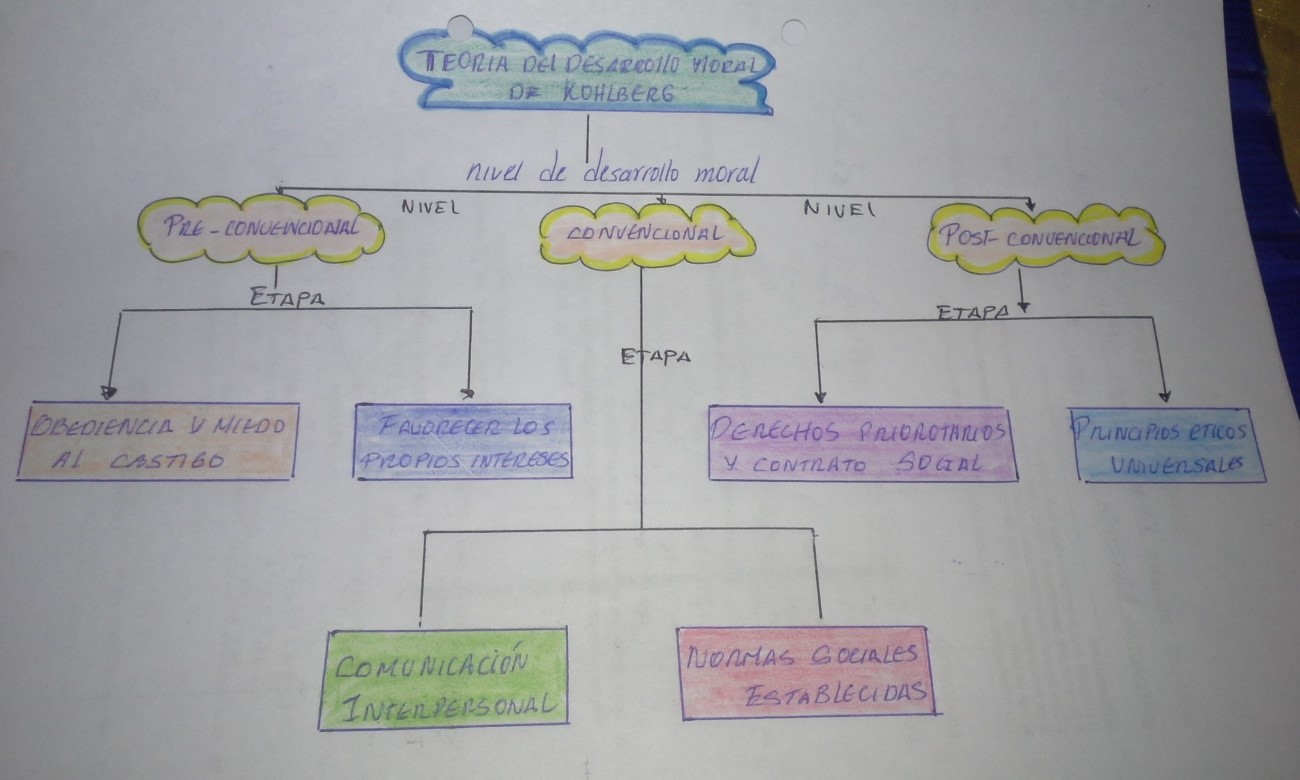 TEORIA DEL DESARROLLO MORAL
DE KOHLBERG
nivel de desarrollo moral
NIVEL
NIVEL
PRE-CONVENCIONAL
CONVENCIONAL
POST-CONVENCIONAL
ETAPA
ETAPA
ETAPA
OBEDIENCIA Y MIEDO
AL CASTIGO
FAVORECER LOS
PROPIOS INTERESES
DERECHOS PRIOROTARIOS
Y CONTRATO SOCIAL
PRINCIPIOS ETICOS
UNIVERSALES
COMUNICACIÓN
INTERPERSONAL
NORMAS SOCIALES
ESTABLECIDAS